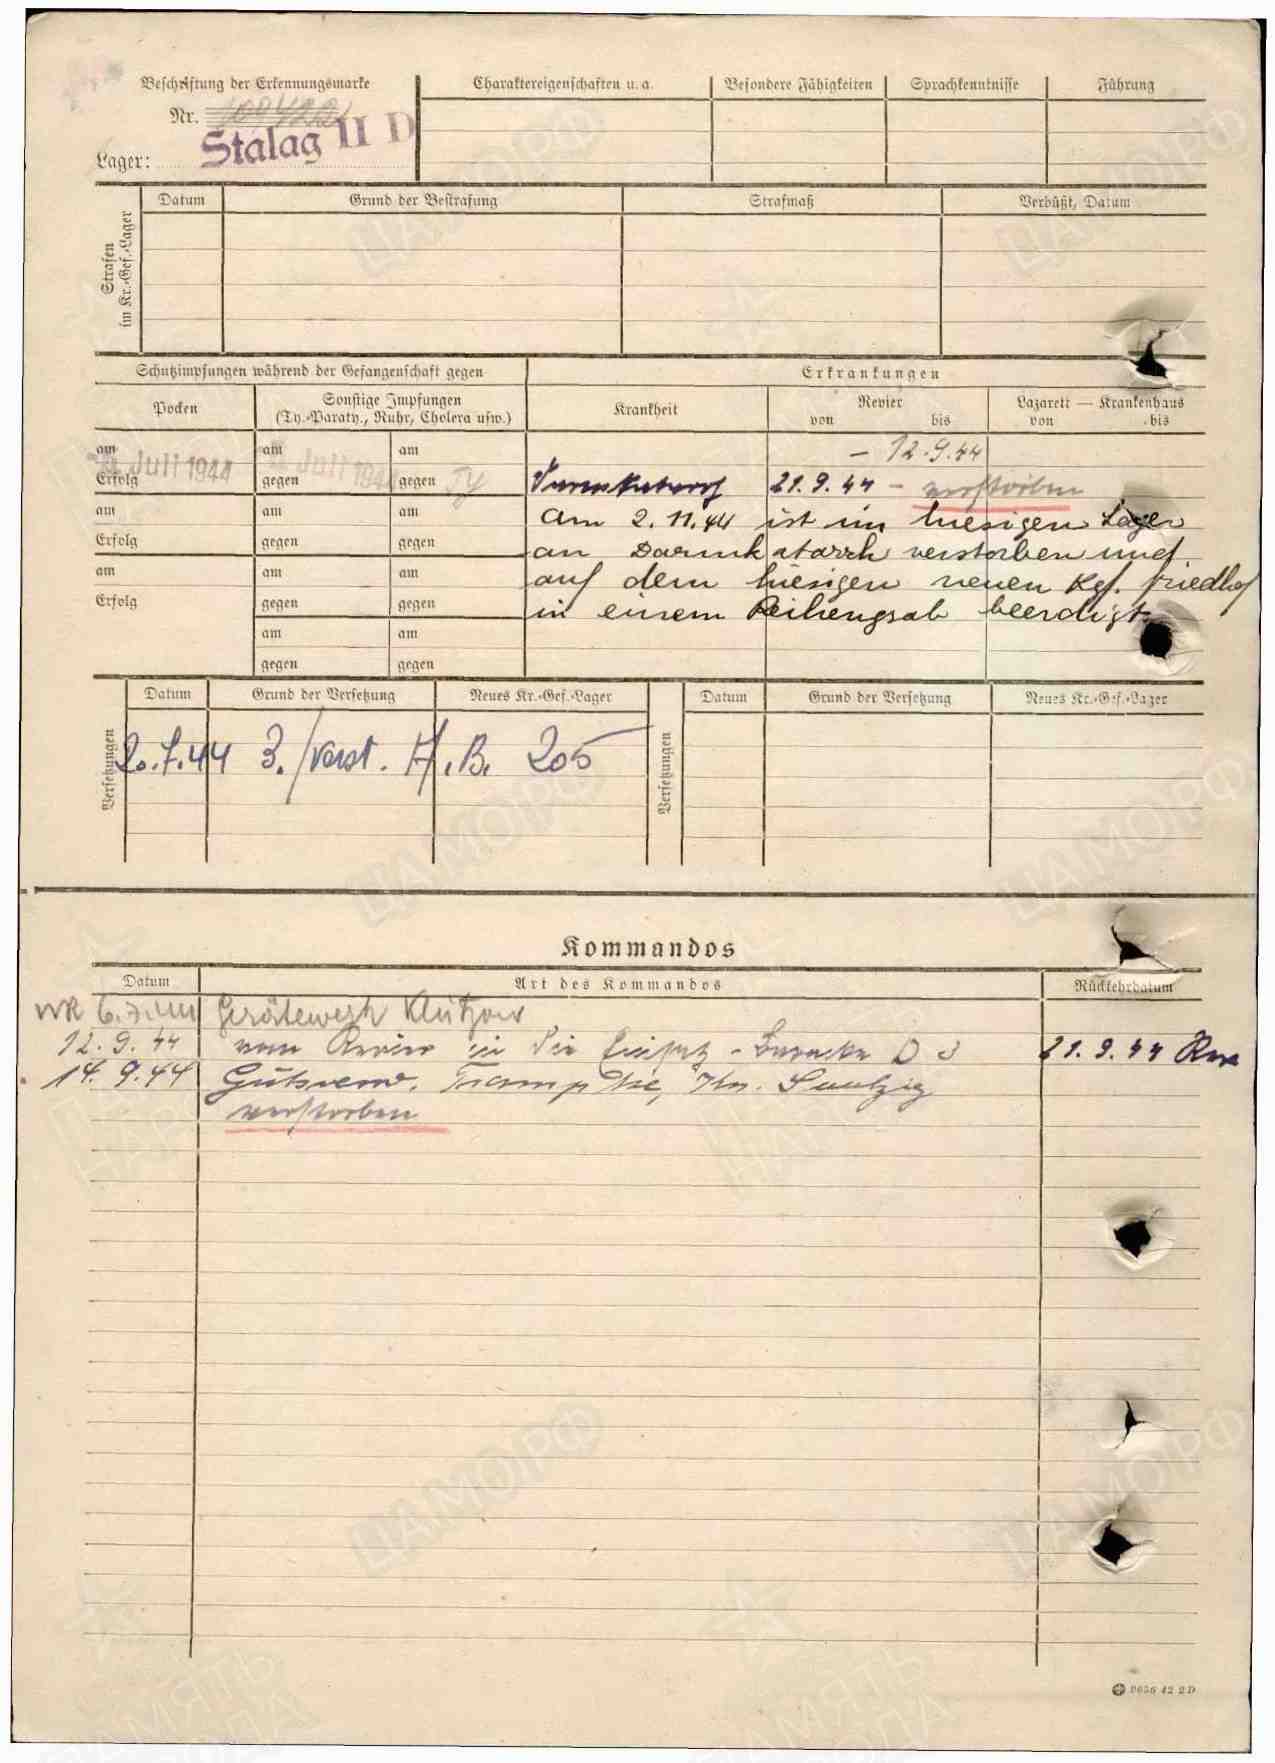 Beschriftung der Erkennungsmarke
Nr. 100422
Lager: Stalag II D
Charaktereigenschaften u. a.
Besondere Fähigkeiten
Sprachkenntnisse
Führung
Strafen
im Kr.-Gef.-Lager
Datum
Grund der Bestrafung
Strafmaß
Verbüßt, Datum
Schutzimpfungen während der Gefangenschaft gegen
Erkrankungen
Pocken
Sonstige Impfungen
(Ty.-Paraty., Ruhr, Cholera usw.)
Krankheit
Revier
von bis
Lazarett — Krankenhaus
von bis
am Juli 1944 am Juli 1944 am
Erfolg gegen gegen Ty
am am am
Erfolg gegen gegen
am am am
Erfolg gegen gegen
am am
gegen gegen
– 12.9.44
Darmkatarrh 21.9.44 – verstorben
Am 2.11.44 ist im hiesigen Lager
an Darmkatarrh verstorben und
auf dem hiesigen neuen Kgf. Friedhof
in einem Reihengrab beerdigt.
Versetzungen
Datum
Grund der Versetzung
Neues Kr.-Gef.-Lager
20.7.44 3./ Verst. H.B. 205
Versetzungen
Datum
Grund der Versetzung
Neues Kr.-Gef.-Lager
Kommandos
Datum
Art des Kommandos
Rückkehrdatum
6.7.44 Gerätewerk Klützow
12.9.44 vom Revier in die Einsatz-Baracke D 3 21.9.44 Rev
14.9.44 Gutsverw. Trampke, Kr. Saatzig
verstorben
0656 42 2D
ЦАМОРФ
ПАМЯТЬ
НАРОДА